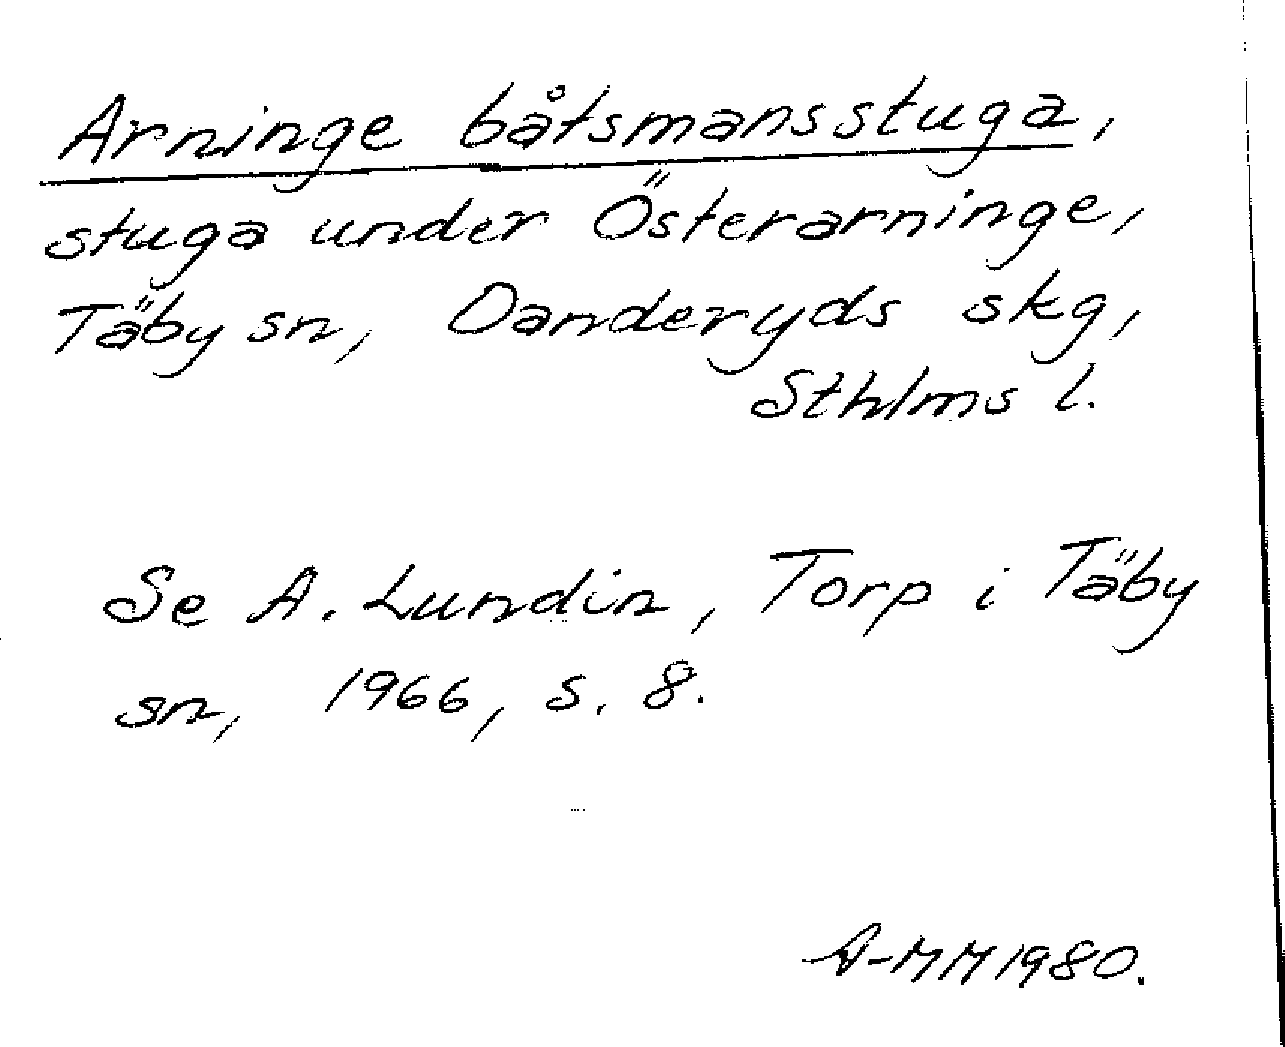 Arninge båtsmansstuga,
stuga under Österarninge,
Täby sn, Danderyds skg,
Sthlms l.
Se A. Lundin, Torp i Täby
sn, 1966, s. 8.
A-MM 1980.